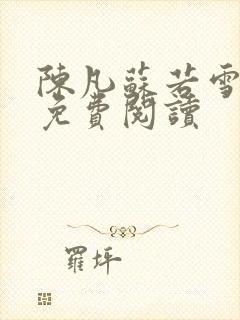 陳凡蘇若雪
免費閱讀
羅坪